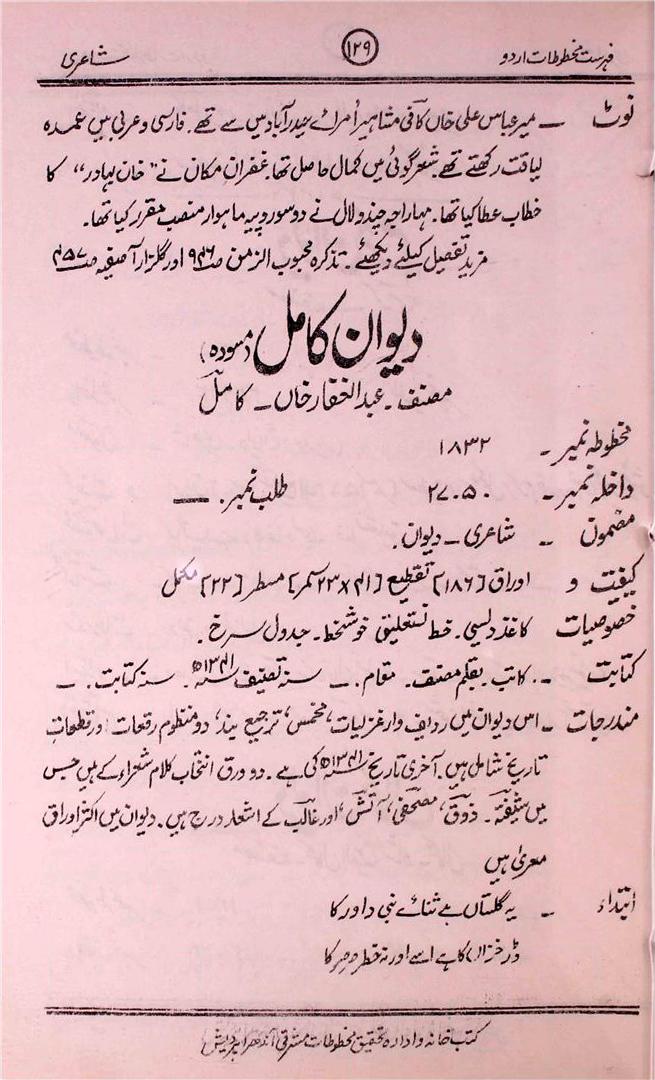 فہرست مخطوطات اردو ۱۲۹ شاعری
نوٹ ـ میر عباس علی خاں کافی مشاہیر اُمرائے حیدرآباد میں سے تھے۔ فارسی و عربی میں عمدہ
لیاقت رکھتے تھے۔ شعر گوئی میں کمال حاصل تھا۔ غفران مکان نے "خان بہادر" کا
خطاب عطا کیا تھا۔ مہاراجہ چندولال نے دو سو روپیہ ماہوار منصب مقرر کیا تھا۔
مزید تفصیل کیلئے دیکھئے۔ تذکرہ محبوب الزمن ص۹۴۶ اور گلزار آصفیہ ص۴۵۷
دیوان کامل (مسودہ)
مصنف۔ عبدالغفار خاں ۔ کامل
مخطوطہ نمبر۔ ۱۸۳۲
داخلہ نمبر۔ ۲۷۰۵۰ طلب نمبر۔ ــــ
مضمون ۔ شاعری ۔ دیوان۔
کیفیت و اوراق [۱۸۶] تقطیع [۴۱ × ۲۳ سمر] مسطر [۲۲] مکمل
خصوصیات کاغذ دلیسی۔ خط نستعلیق خوشخط۔ جدول سرخ۔
کتابت ۔ کاتب۔ بقلم مصنف۔ مقام۔ ــ سنہ تصنیف ۱۳۴۱ھ۔ سنہ کتابت۔ ــ
مندرجات ۔ اس دیوان میں ردیف وار غزلیات، مخمس، ترجیع بند، دو منظوم رقعات اور قطعات
تاریخ شامل ہیں۔ آخری تاریخ ۱۳۴۱ھ کی ہے۔ دو ورق انتخاب کلام شعراء کے ہیں جس
میں شیفتہ۔ ذوق، مصحفی، آتش، اور غالب کے اشعار درج ہیں۔ دیوان میں اکثر اوراق
معریٰ ہیں
ابتداء ۔ یہ گلستاں ہے ثنائے نبی داور کا
ڈر خزاں کا ہے اسے اور نہ خطر صرصر کا
کتب خانہ و ادارہ تحقیق مخطوطات مشرقی آندھرا پردیش